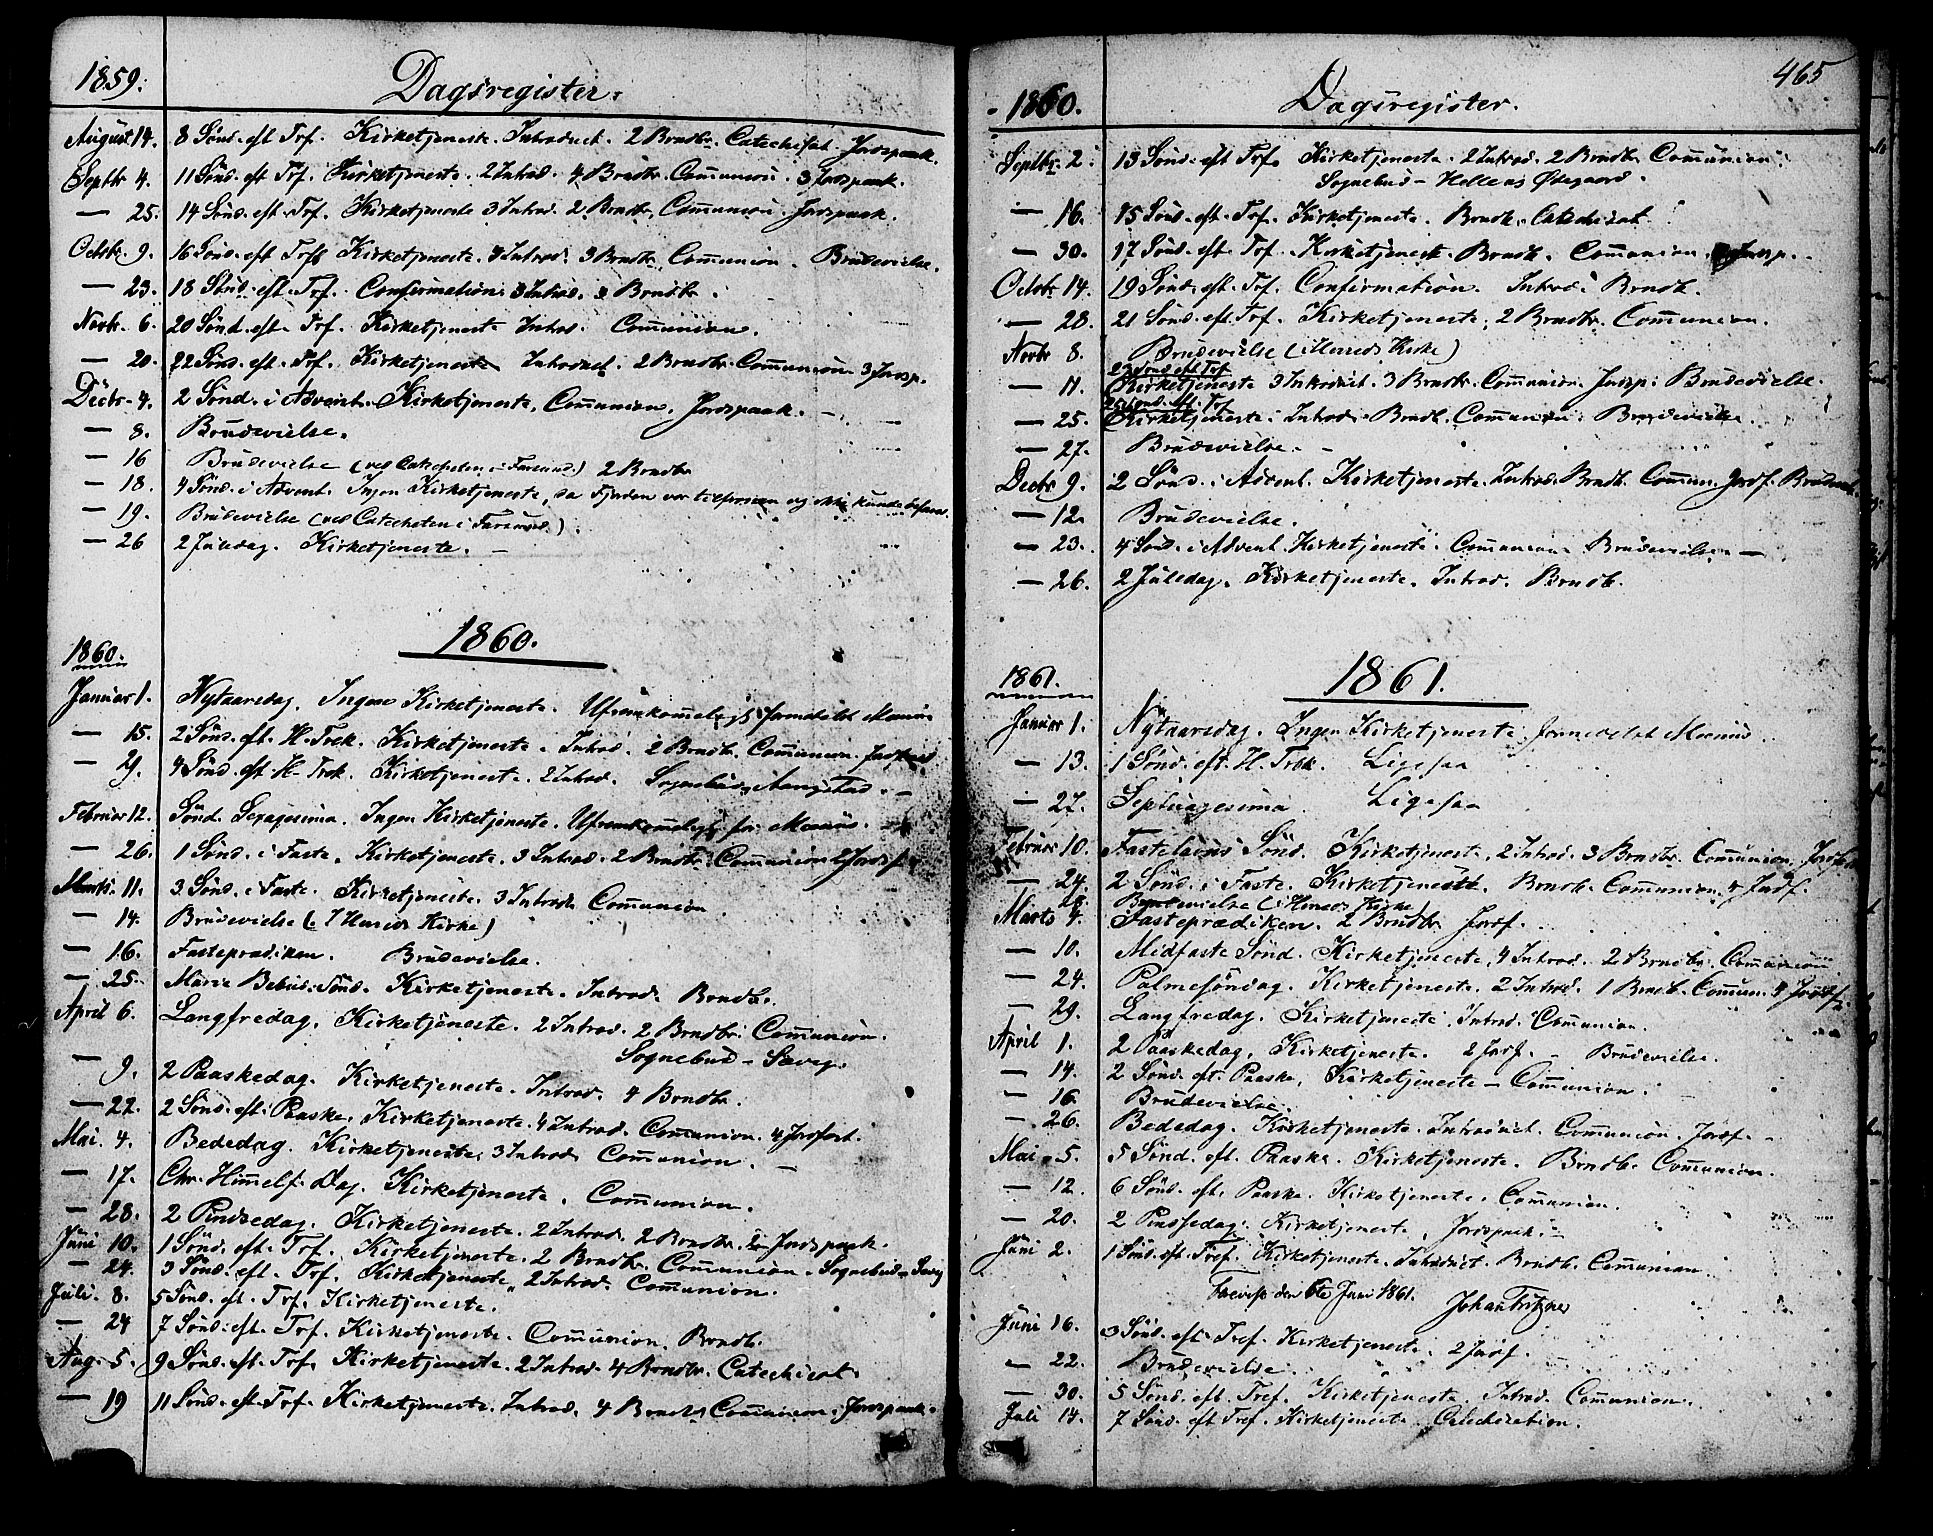 1859.
Dagsregister.
August 14. 8 Sønd. eft. Tref. Kirketjeneste. Introduct. 2 Brndb. Catechisat. Jordspaak.
Septbr 4. 11 Sønd. eft. Tref. Kirketjeneste. 2 Introd. 4 Brndb. Communion. 3 Jordspaak.
— 25. 14 Sønd. eft. Tref. Kirketjeneste 3 Introd. 2 Brndb. Communion. Jordspaak.
Octobr. 9. 16 Sønd. eft Tref. Kirketjeneste. 4 Introd. 3 Brndb. Communion. Brudevielse.
— 23. 18 Sønd. eft. Tref. Confirmation. 3 Introd. 2 Brndb.
Novbr. 6. 20 Sønd. eft. Tref. Kirketjeneste Introd. Communion.
— 20. 22 Sønd. eft. Tref. Kirketjeneste Introduct. 2 Brndb. Communion 3 Jordsp.
Decbr. 4. 2 Sønd. i Advent. Kirketjeneste. Communion. Jordspaak. —
— 8. Brudevielse.
— 16 Brudevielse (ved i Farsund.) 2 Brndb
— 18. 4 Sønd. i Advent. Ingen Kirketjeneste, da Fjorden var tilfrosen og ikke kunde befares.
— 19. Brudevielse (ved Catecheten i Farsund.)
— 26 2 Juledag. Kirketjeneste. —
1860.
1860.
Januar 1. Nytaarsdag. Ingen Kirketjeneste. Ufremkommeligt formedelst Menis
— 15. 2 Sønd. eft. H. Trek. Kirketjeneste. Introd. 2 Brndb. Communion. Jordspaak
— 29. 4 Sønd. eft H. Trek. Kirketjeneste. 2 Introd. Sognebud. Aangstad. —
Februar 12. Sønd. Sexagesima. Ingen Kirketjeneste. Ufremkommeligt for Menis.
— 26. 1 Sønd. i Faste. Kirketjeneste. 3 Introd. 2 Brndb. Communion 2 Jordsf.
Marts. 11. 3 Sønd. i Faste. Kirketjeneste. 3 Introd. Communion
— 14. Brudevielse (i Hereds Kirke)
— 16. Fasteprædiken. Brudevielse.
— 25. Mariæ Bebud. Sønd. Kirketjeneste. Introd. Brndb.
April 6. Langfredag. Kirketjeneste. 2 Introd. 2 Brndb. Communion.
Sognebud —
— 9. 2 Paaskedag. Kirketjeneste. Introd. 4 Brndb.
— 22. 2 Sønd. eft. Paaske. Kirketjeneste. 4 Introd. Communion. 4 Jordfest.
Mai. 4. Bededag. Kirketjeneste. 3 Introd. Communion. —
— 17. Chr. Himmelf. Dag. Kirketjeneste. Communion.
— 28. 2 Pindsedag. Kirketjeneste. 2 Introd. 2 Brndb. 2 Jordspaak.
Juni 10. 1 Sønd. eft. Tref. Kirketjeneste. 2 Brndb. Communion. Sognebud —
— 24. 3 Sønd. eft. Tref. Kirketjeneste 2 Introd. Communion.
Juli. 8. 5 Sønd. eft. Tref. Kirketjeneste.
— 24 7 Sønd. eft. Tref. Kirketjeneste. Communion. Brndb.
Aug. 5. 9 Sønd. eft. Tref. Kirketjeneste. 2 Introd. 4 Brndb. Catechisat.
— 19 11 Sønd. eft. Tref. Kirketjeneste. Introd. 4 Brndb. Communion. Jordspaak.
465
1860.
Dagsregister.
Septbr. 2. 13 Sønd. eft Tref. Kirketjeneste. 2 Introd. 2 Brndb. Communion.
Sognebud — Hellens Ødegaard.
— 16. 15 Sønd. eft. Tref. Kirketjeneste. Brndb. Catechisat.
— 30. 17 Sønd. eft. Tref. Kirketjeneste. Brndb. Communion. Jordsp.
Octobr 14. 19 Sønd. eft. Tref. Confirmation. Introd. Brndb.
— 28. 21 Sønd. eft. Tref. Kirketjeneste. 2 Brndb. Communion.
Novbr 8. Brudevielse (i Hereds Kirke)
23 Sønd eft. Tref
— 11. Kirketjeneste 3 Introduct. 3 Brndb. Communion. Jordsp. Brudevielse.
25 Sønd. eft. Tref
— 25. Kirketjeneste. Introd. Brndb. Communion. Brudevielse.
— 27. Brudevielse. —
Decbr 9. 2 Sønd. i Advent. Kirketjeneste. Introd. Brndb. Commun. Jordf. Brudevielse
— 12. Brudevielse.
— 23. 4 Sønd. i Advent. Kirketjeneste. Communion. Brudevielse. —
— 26. 2 Juledag. Kirketjeneste. Introd. Brndb.
1861.
1861.
Januar 1. Nytaarsdag. Ingen Kirketjeneste formedelst Menis
— 13. 1 Sønd. eft. H. Trek. Ligesaa
— 27. Septuagesima Ligesaa
Februar 10. Fastelavns Sønd. Kirketjeneste. 2 Introd. 3 Brndb. Communion. Jordf.
— 24. 2 Sønd. i Faste. Kirketjeneste. Brndb. Communion. 4 Jordf.
28. Brudevielse (i Hereds Kirke)
Marts 4. Fasteprædiken. 2 Brndb. Jordf.
— 10. Midfaste Sønd. Kirketjeneste. 4 Introd. 2 Brndb. Communion
— 24. Palmesøndag. Kirketjeneste. 2 Introd. 1 Brndb. Commun. 4 Jordf.
— 29. Langfredag. Kirketjeneste. Introd. Communion.
April 1. 2 Paaskedag. Kirketjeneste. 2 Jordf. — Brudevielse.
— 14. 2 Sønd. eft. Paaske. Kirketjeneste — Communion.
— 16. Brudevielse.
— 26. Bededag. Kirketjeneste. Introduct. Communion. Jordf. —
Mai — 5. 5 Sønd. eft. Paaske. Kirketjeneste. Brndb. Communion.
— 12. 6 Sønd. eft. Paaske. Kirketjeneste. Communion.
— 20. 2 Pindsedag. Kirketjeneste. Jordspaak. —
Juni 2. 1 Sønd. eft. Tref. Kirketjeneste. Introduct. Brndb. Communion.
Foreviist den 6te Juni 1861. Johan Fritzner
Juni 16. 3 Sønd. eft. Tref. Kirketjeneste. 2 Jordf.
— 22. Brudevielse.
— 30. 5 Sønd. eft. Tref. Kirketjeneste. Introd. Communion.
Juli 14. 7 Sønd. eft Tref. Kirketjeneste. Catechisation.